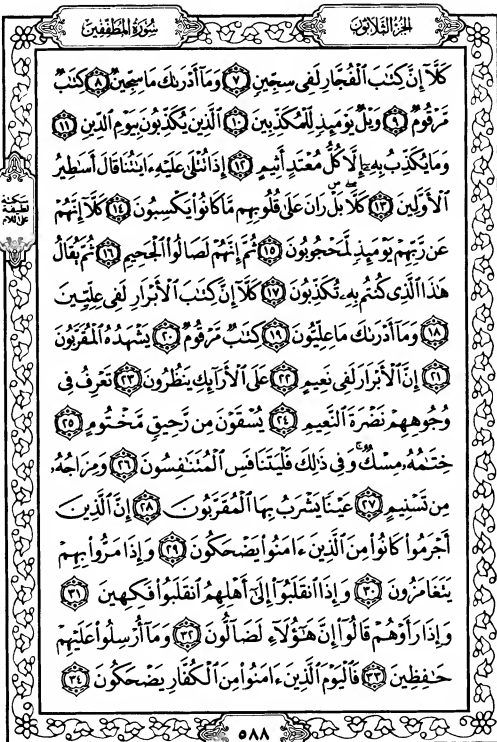 سُورَةُ المُطَفِّفِين
الجُزءُ الثَّلاثُونَ
كَلَّآ إِنَّ كِتَٰبَ ٱلْفُجَّارِ لَفِى سِجِّينٍ ٧ وَمَآ أَدْرَىٰكَ مَا سِجِّينٌ ٨ كِتَٰبٌ
مَّرْقُومٌ ٩ وَيْلٌ يَوْمَئِذٍ لِّلْمُكَذِّبِينَ ١٠ ٱلَّذِينَ يُكَذِّبُونَ بِيَوْمِ ٱلدِّينِ ١١
وَمَا يُكَذِّبُ بِهِۦٓ إِلَّا كُلُّ مُعْتَدٍ أَثِيمٍ ١٢ إِذَا تُتْلَىٰ عَلَيْهِ ءَايَٰتُنَا قَالَ أَسَٰطِيرُ
ٱلْأَوَّلِينَ ١٣ كَلَّا ۖ بَلْ ۜ رَانَ عَلَىٰ قُلُوبِهِم مَّا كَانُوا۟ يَكْسِبُونَ ١٤ كَلَّآ إِنَّهُمْ
عَن رَّبِّهِمْ يَوْمَئِذٍ لَّمَحْجُوبُونَ ١٥ ثُمَّ إِنَّهُمْ لَصَالُوا۟ ٱلْجَحِيمِ ١٦ ثُمَّ يُقَالُ
هَٰذَا ٱلَّذِى كُنتُم بِهِۦ تُكَذِّبُونَ ١٧ كَلَّآ إِنَّ كِتَٰبَ ٱلْأَبْرَارِ لَفِى عِلِّيِّينَ
١٨ وَمَآ أَدْرَىٰكَ مَا عِلِّيُّونَ ١٩ كِتَٰبٌ مَّرْقُومٌ ٢٠ يَشْهَدُهُ ٱلْمُقَرَّبُونَ
٢١ إِنَّ ٱلْأَبْرَارَ لَفِى نَعِيمٍ ٢٢ عَلَى ٱلْأَرَآئِكِ يَنظُرُونَ ٢٣ تَعْرِفُ فِى
وُجُوهِهِمْ نَضْرَةَ ٱلنَّعِيمِ ٢٤ يُسْقَوْنَ مِن رَّحِيقٍ مَّخْتُومٍ ٢٥
خِتَٰمُهُۥ مِسْكٌ ۚ وَفِى ذَٰلِكَ فَلْيَتَنَافَسِ ٱلْمُتَنَٰفِسُونَ ٢٦ وَمِزَاجُهُۥ
مِن تَسْنِيمٍ ٢٧ عَيْنًا يَشْرَبُ بِهَا ٱلْمُقَرَّبُونَ ٢٨ إِنَّ ٱلَّذِينَ
أَجْرَمُوا۟ كَانُوا۟ مِنَ ٱلَّذِينَ ءَامَنُوا۟ يَضْحَكُونَ ٢٩ وَإِذَا مَرُّوا۟ بِهِمْ
يَتَغَامَزُونَ ٣٠ وَإِذَا ٱنقَلَبُوٓا۟ إِلَىٰٓ أَهْلِهِمُ ٱنقَلَبُوا۟ فَكِهِينَ ٣١
وَإِذَا رَأَوْهُمْ قَالُوٓا۟ إِنَّ هَٰٓؤُلَآءِ لَضَآلُّونَ ٣٢ وَمَآ أُرْسِلُوا۟ عَلَيْهِمْ
حَٰفِظِينَ ٣٣ فَٱلْيَوْمَ ٱلَّذِينَ ءَامَنُوا۟ مِنَ ٱلْكُفَّارِ يَضْحَكُونَ ٣٤
سَكتَة
لَطيفَة
عَلى اللام
٥٨٨